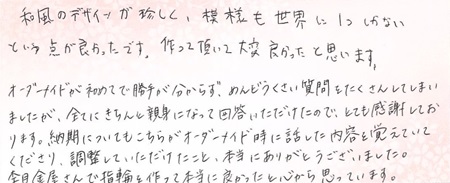 和風のデザインが珍しく、模様も世界に1つしかない
という点が良かったです。作って頂いて大変良かったと思います。
オーダーメイドが初めてで勝手が分からず、めんどうくさい質問をたくさんしてしまい
ましたが、全てにきちんと親身になって回答いただけたので、とても感謝してお
ります。納期についてもこちらがオーダーメイド時に話した内容を覚えていて
くださり、調整していただけたこと、本当にありがとうございました。
杢目金屋さんで指輪を作って本当に良かったと心から思っています。